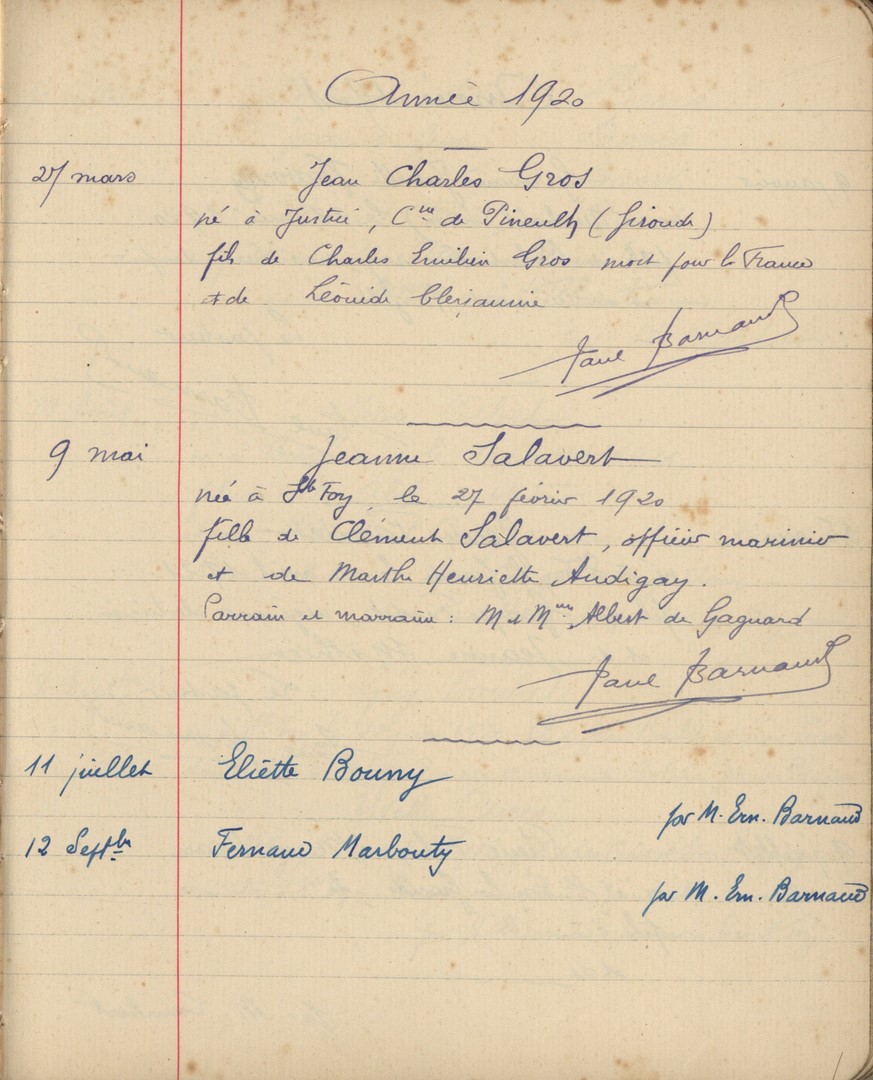 Année 1920
27 mars
Jean Charles Gros
né à Justice, Cne de Pineuilh (Gironde)
fils de Charles Emilien Gros mort pour la France
et de Léonide
Paul Barnaud
9 mai
Jeanne Salavert
née à Ste Foy, le 27 février 1920
fille de Clément Salavert, officier marinier
et de Marthe Henriette Audigay.
Parrain et marraine : M et Mme Albert de Gagnard
Paul Barnaud
11 juillet Eliette Bouny
par M. Ern. Barnaud
12 Septbre Fernand Marbouty
par M. Ern. Barnaud